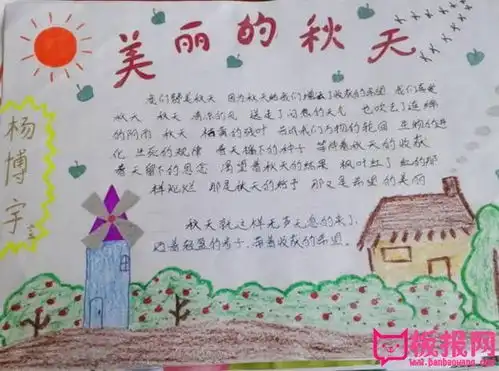 美丽的秋天
我们赞美秋天 因为秋天给我们带来了收获的希望 我们喜爱
秋天 秋天 清凉的风 送走了闷热的天气 也吹去了连绵
的阴雨 秋天 枯黄的残叶 告诉我们万物的轮回 生物的进
化 生死的规律 春天播下的种子 等待着秋天的收获
春天留下的思念 渴望着秋天的结果 枫叶红了 红的那
样灿烂 那是秋天的给予 那又是希望的美丽
秋天就这样无声无息的来了,
迈着轻盈的步子,带着收获的希望。
杨博宇
板报网
www.banbaowang.com